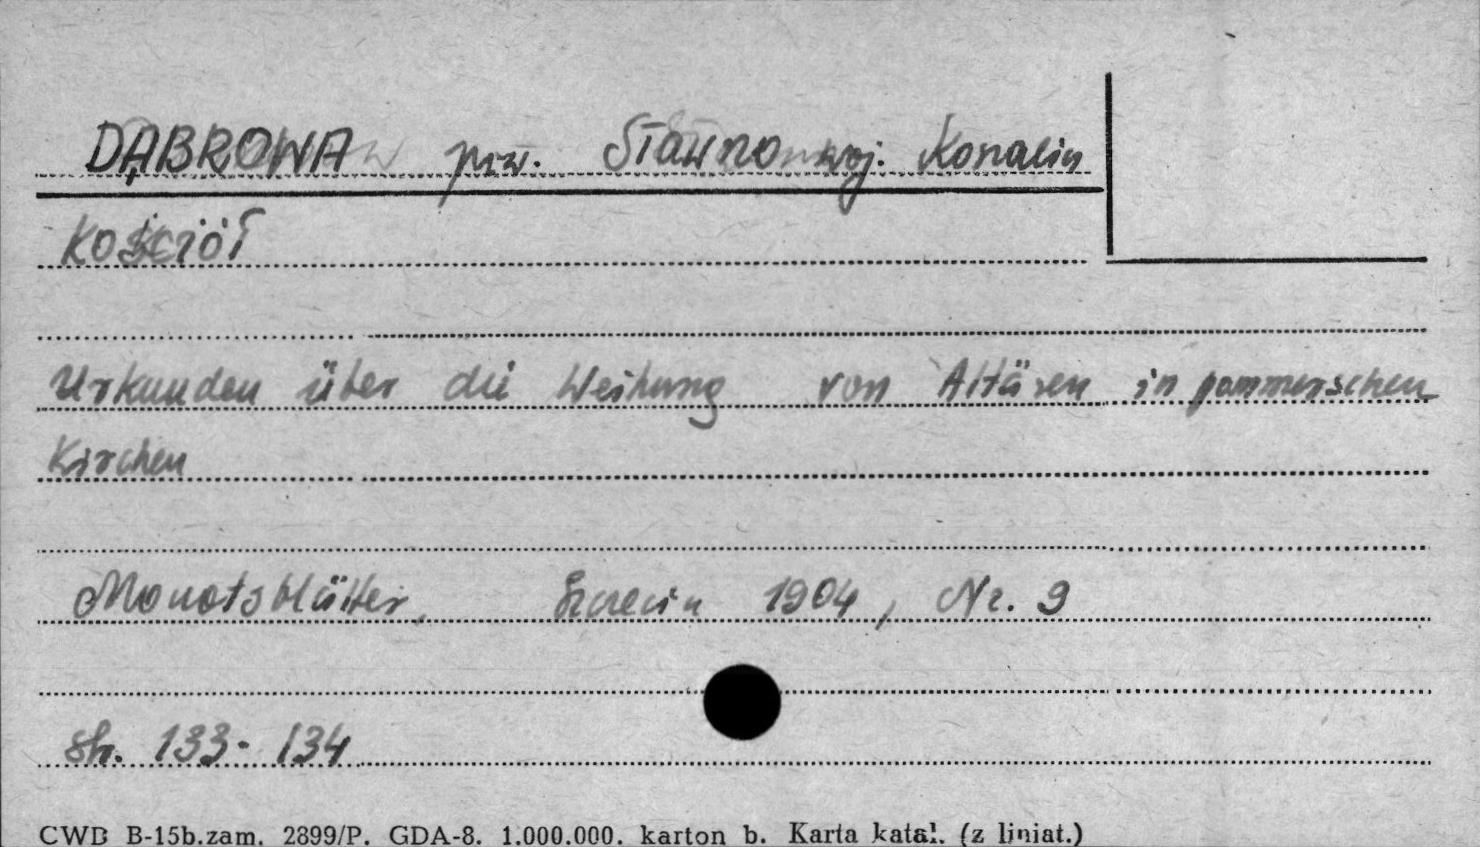 DĄBROWA pow. Sławno woj. Koszalin
KOŚCIÓŁ
Urkunden über die Weihung von Altären in pommerschen
Kirchen
Monatsblätter, Szczecin 1904, Nr. 9
str. 133-134
CWD B-15b.zam. 2899/P. GDA-8. 1.000.000. karton b. Karta katal. (z liniat.)